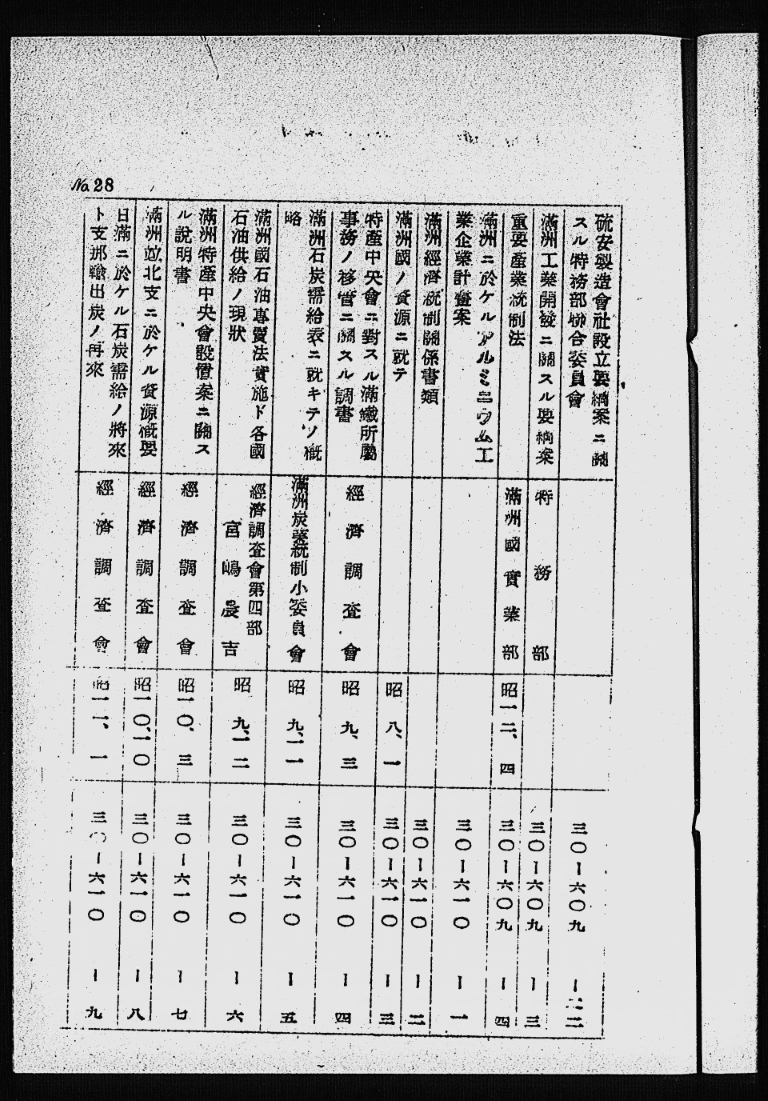 No 28
硫安製造會社設立要綱案ニ關
スル特務部聯合委員會
三〇ー六〇九ー二二
滿洲工業開發ニ關スル要綱案
特務部
三〇ー六〇九ー三
重要產業統制法
滿洲國實業部
昭一二、四
三〇ー六〇九ー四
滿洲ニ於ケルアルミニウム工
業企業計畫案
三〇ー六一〇ー一
滿洲經濟統制關係書類
三〇ー六一〇ー二
滿洲國ノ資源ニ就テ
昭八、一
三〇ー六一〇ー三
特產中央會ニ對スル滿鐵所屬
事務ノ移管ニ關スル調書
經濟調査會
昭九、三
三〇ー六一〇ー四
滿洲石炭需給表ニ就キテノ槪
略
滿洲炭業統制小委員會
昭九、一一
三〇ー六一〇ー五
滿洲國石油專賣法實施ト各國
石油供給ノ現狀
經濟調査會第四部
宮嶋晨吉
昭九、一二
三〇ー六一〇ー六
滿洲特產中央會設置案ニ關ス
ル說明書
經濟調査會
昭一〇、三
三〇ー六一〇ー七
滿洲竝北支ニ於ケル資源槪要
經濟調査會
昭一〇、一〇
三〇ー六一〇ー八
日滿ニ於ケル石炭需給ノ將來
ト支那輸出炭ノ再來
經濟調査會
昭一一、一
三〇ー六一〇ー九